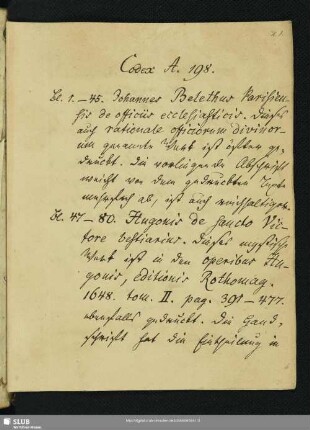 Codex A. 198.
Bl. 1. – 45. Johannes Belethus Parisien-
sis de officiis ecclesiasticis. Dieses
auch rationale officiorum divinor-
um genannte Werk ist öfters ge-
druckt. Die vorliegende Abschrift
weicht von dem gedruckten Texte
mehrfach ab, ist auch reichhaltiger.
Bl. 47 – 80. Hugonis de sancto Vic-
tore bestiarius. Dieses mystische
Werk ist in den operibus Hu-
gonis, editionis Rothomag.
1648. tom. II. pag. 391 – 477.
ebenfalls gedruckt. Die Hand-
schrift hat die Eintheilung in
SLUB